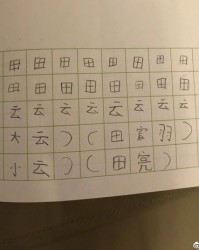 田 田 田 田 田 田 田 田
田 田 田 田 田 田 田 田
云 云 云 云 云 云 云 云
大 云 ） （ 田 官 羽 ）
小 云 ） （ 田 亮 ）